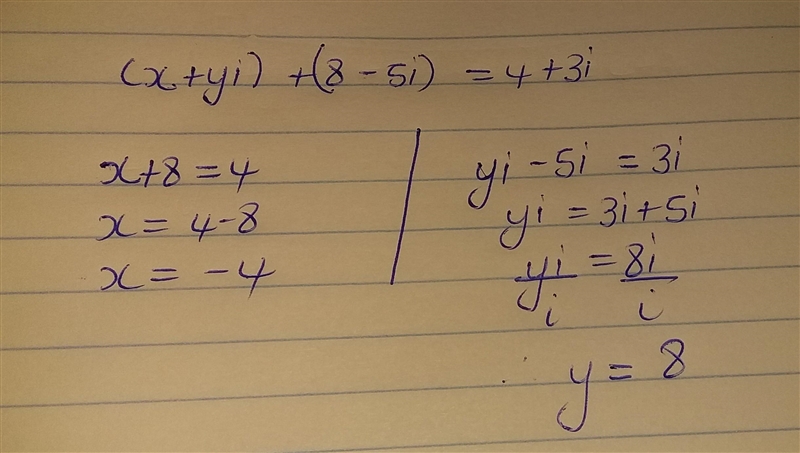 (x+yi) +(8-5i) = 4+3i
x+8=4
x= 4-8
x= -4
yi -5i = 3i
yi = 3i+5i
yi/i = 8i/i
∴ y = 8